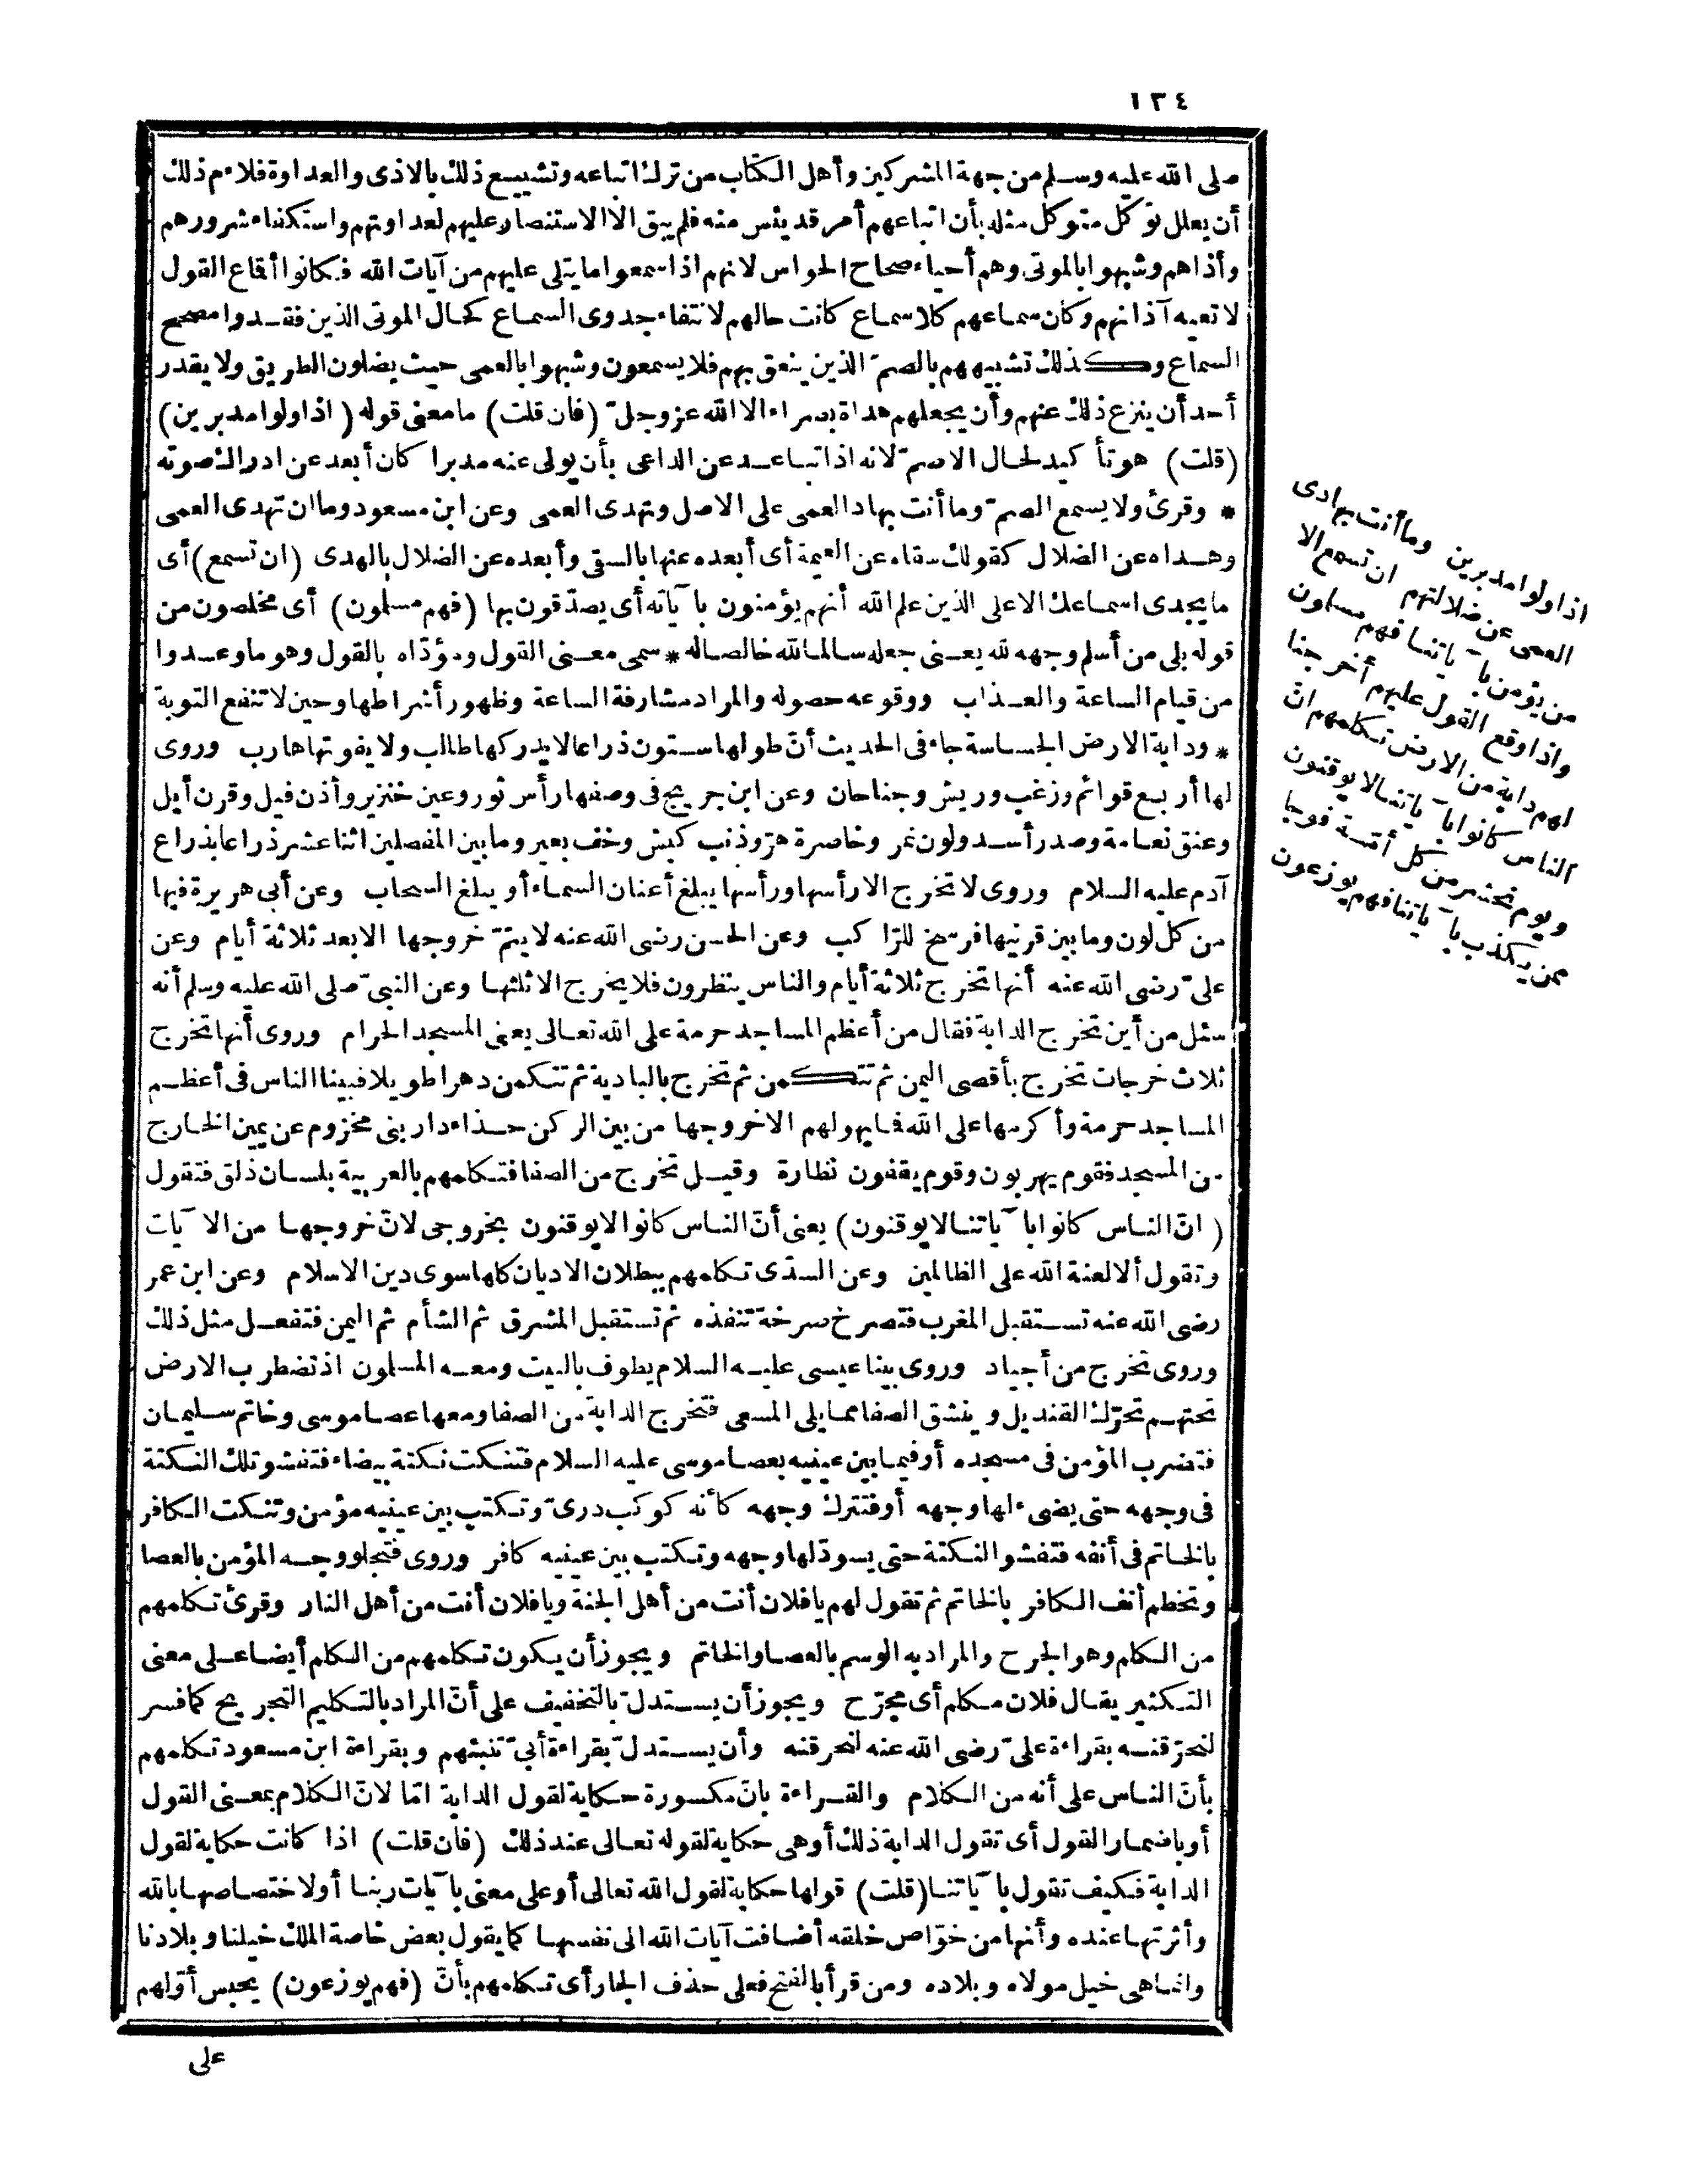 ١٣٤
صلى الله عليه وسلم من جهة المشركين وأهل الكتاب من ترك اتباعه وتشييع ذلك بالاذى والعداوة فلاءم ذلك
أن يعلل توكل متوكل مثله بأن اتباعهم أمر قد يئس منه فلم يبق الا الاستنصار عليهم لعداوتهم واستكفاء شرورهم
وأذاهم وشبهوا بالموتى وهم أحياء صحاح الحواس لانهم اذا سمعوا ما يتلى عليهم من آيات الله فكانوا أقماع القول
لا تعيه آذانهم وكان سماعهم كلا سماع كانت حالهم لانتفاء جدوى السماع كحال الموتى الذين فقدوا مصحح
السماع وكذلك تشبيههم بالصمّ الذين ينعق بهم فلا يسمعون وشبهوا بالعمى حيث يضلون الطريق ولا يقدر
أحد أن ينزع ذلك عنهم وأن يجعلهم هداة بصراء الا الله عز وجلّ (فان قلت) ما معنى قوله (اذا ولوا مدبرين)
(قلت) هو تأكيد لحال الاصمّ لانه اذا تباعد عن الداعى بأن يولى عنه مدبرا كان أبعد عن ادراك صوته
* وقرئ ولا يسمع الصمّ وما أنت بهاد العمى على الاصل وتهدى العمى وعن ابن مسعود وما ان تهدى العمى
وهداه عن الضلال كقولك سقاه عن العيمة أى أبعده عنها بالسقى وأبعده عن الضلال بالهدى (ان تسمع) أى
ما يجدى اسماعك الا على الذين علم الله أنهم يؤمنون بآياته أى يصدّقون بها (فهم مسلمون) أى مخلصون من
قوله بلى من أسلم وجهه لله يعنى جعله سالما لله خالصا له * سمى معنى القول ومؤدّاه بالقول وهو ما وعدوا
من قيام الساعة والعذاب ووقوعه حصوله والمراد مشارفة الساعة وظهور أشراطها وحين لا تنفع التوبة
* ودابة الارض الجساسة جاء فى الحديث أنّ طولها ستون ذراعا لا يدركها طالب ولا يفوتها هارب وروى
لها أربع قوائم وزغب وريش وجناحان وعن ابن جريج فى وصفها رأس ثور وعين خنزير وأذن فيل وقرن أيل
وعنق نعامة وصدر أسد ولون نمر وخاصرة هرّ وذنب كبش وخف بعير وما بين المفصلين اثنا عشر ذراعا بذراع
آدم عليه السلام وروى لا تخرج الا رأسها ورأسها يبلغ أعنان السماء أو يبلغ السحاب وعن أبى هريرة فيها
من كل لون وما بين قرنيها فرسخ للراكب وعن الحسن رضى الله عنه لا يتمّ خروجها الا بعد ثلاثة أيام وعن
علىّ رضى الله عنه أنها تخرج ثلاثة أيام والناس ينظرون فلا يخرج الا ثلثها وعن النبىّ صلى الله عليه وسلم أنه
سئل من أين تخرج الدابة فقال من أعظم المساجد حرمة على الله تعالى يعنى المسجد الحرام وروى أنها تخرج
ثلاث خرجات تخرج بأقصى اليمن ثم تتكمن ثم تخرج بالبادية ثم تتكمن دهرا طويلا فبينا الناس فى أعظم
المساجد حرمة وأكرمها على الله فما يهولهم الا خروجها من بين الركن حذاء دار بنى مخزوم عن يمين الخارج
من المسجد فقوم يهربون وقوم يقفون نظارة وقيل تخرج من الصفا فتكلمهم بالعربية بلسان ذلق فتقول
(انّ الناس كانوا بآياتنا لا يوقنون) يعنى أنّ الناس كانوا لا يوقنون بخروجى لانّ خروجها من الآيات
وتقول ألا لعنة الله على الظالمين وعن السدّى تكلمهم ببطلان الاديان كلها سوى دين الاسلام وعن ابن عمر
رضى الله عنه تستقبل المغرب فتصرخ صرخة تنفذه ثم تستقبل المشرق ثم الشأم ثم اليمن فتفعل مثل ذلك
وروى تخرج من أجياد وروى بينا عيسى عليه السلام يطوف بالبيت ومعه المسلمون اذ تضطرب الارض
تحتهم تحرّك القنديل وينشق الصفا مما يلى المسعى فتخرج الدابة من الصفا ومعها عصا موسى وخاتم سليمان
فتضرب المؤمن فى مسجده أو فيما بين عينيه بعصا موسى عليه السلام فتنكت نكتة بيضاء فتفشو تلك النكتة
فى وجهه حتى يضىء لها وجهه أو فتترك وجهه كأنه كوكب درىّ وتكتب بين عينيه مؤمن وتنكت الكافر
بالخاتم فى أنفه فتفشو النكتة حتى يسودّ لها وجهه وتكتب بين عينيه كافر وروى فتجلو وجه المؤمن بالعصا
وتخطم أنف الكافر بالخاتم ثم تقول لهم يا فلان أنت من أهل الجنة ويا فلان أنت من أهل النار وقرئ تكلمهم
من الكلم وهو الجرح والمراد به الوسم بالعصا والخاتم ويجوز أن يكون تكلمهم من الكلم أيضا على معنى
التكثير يقال فلان مكلم أى مجرّح ويجوز أن يستدلّ بالتخفيف على أنّ المراد بالتكليم التجريح كما فسر
لنحرّقنه بقراءة علىّ رضى الله عنه لنحرقنه وأن يستدلّ بقراءة أبىّ تنبئهم وبقراءة ابن مسعود تكلمهم
بأنّ الناس على أنه من الكلام والقراءة بانّ مكسورة حكاية لقول الدابة امّا لانّ الكلام بمعنى القول
أو باضمار القول أى تقول الدابة ذلك أو هى حكاية لقوله تعالى عند ذلك (فان قلت) اذا كانت حكاية لقول
الدابة فكيف تقول بآياتنا (قلت) قولها حكاية لقول الله تعالى أو على معنى بآيات ربنا أو لاختصاصها بالله
وأثرتها عنده وأنها من خوّاص خلقه أضافت آيات الله الى نفسها كما يقول بعض خاصة الملك خيلنا وبلادنا
وانما هى خيل مولاه وبلاده ومن قرأ بالفتح فعلى حذف الجار أى تكلمهم بأنّ (فهم يوزعون) يحبس أوّلهم
على
اذا ولوا مدبرين وما أنت بهادى
العمى عن ضلالتهم ان تسمع الا
من يؤمن بآياتنا فهم مسلمون
واذا وقع القول عليهم أخرجنا
لهم دابة من الارض تكلمهم انّ
الناس كانوا بآياتنا لا يوقنون
ويوم نحشر من كل أمّة فوجا
ممن يكذب بآياتنا فهم يوزعون